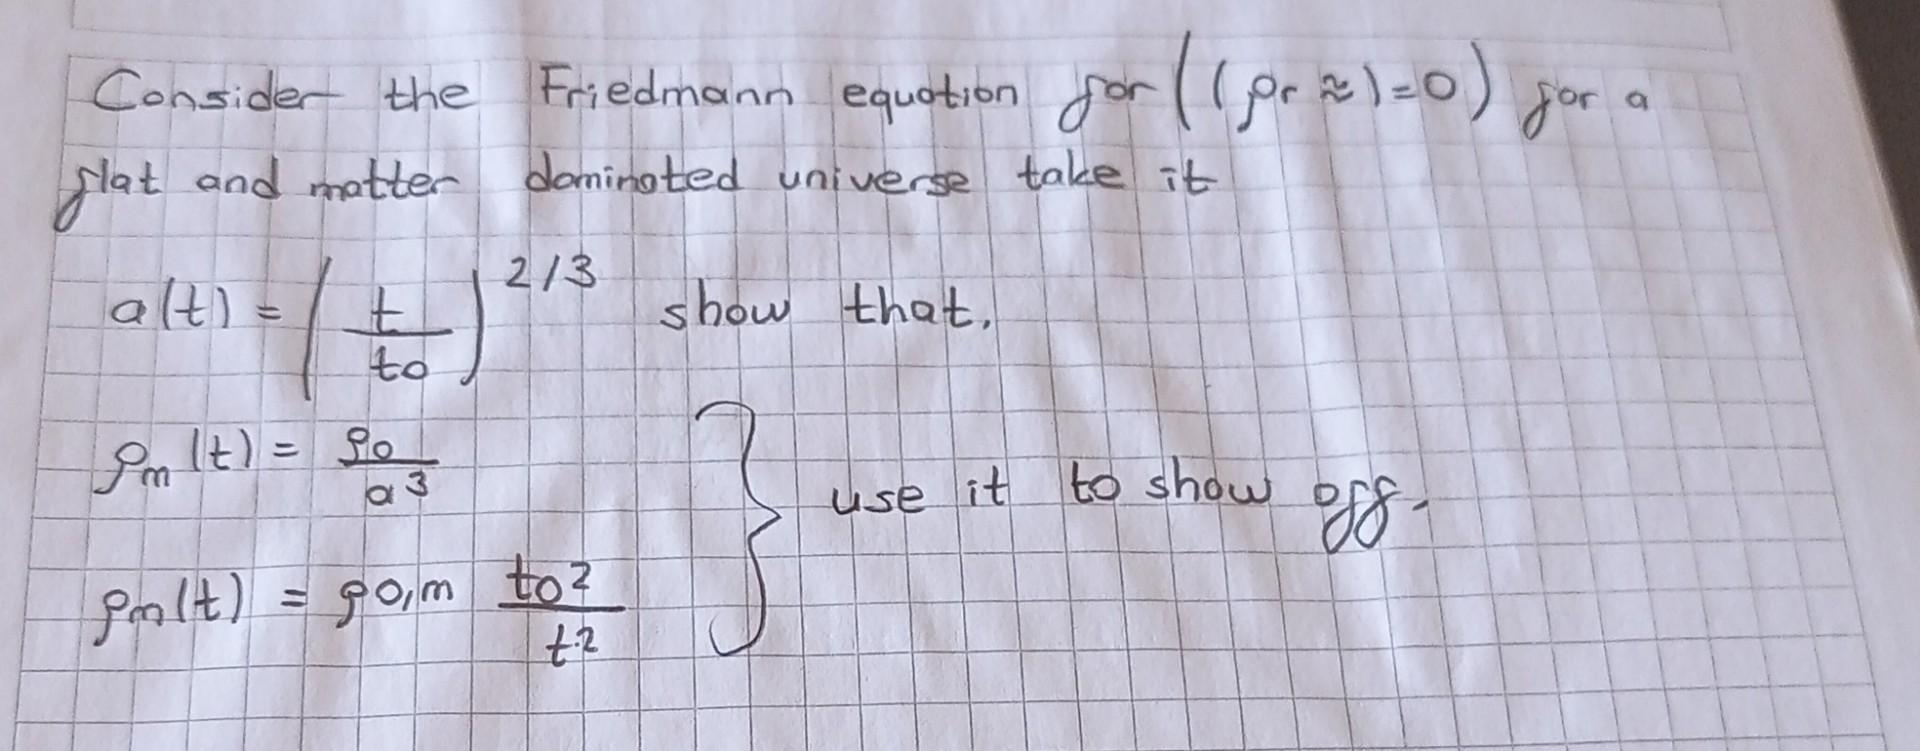 Consider the Friedmann equation for ((ρr ≈)=0) for a
flat and matter dominated universe take it
a(t) = (t/to)^2/3 show that.
ρm(t) = ρo/a^3
use it to show off.
ρm(t) = ρo,m to^2/t^2